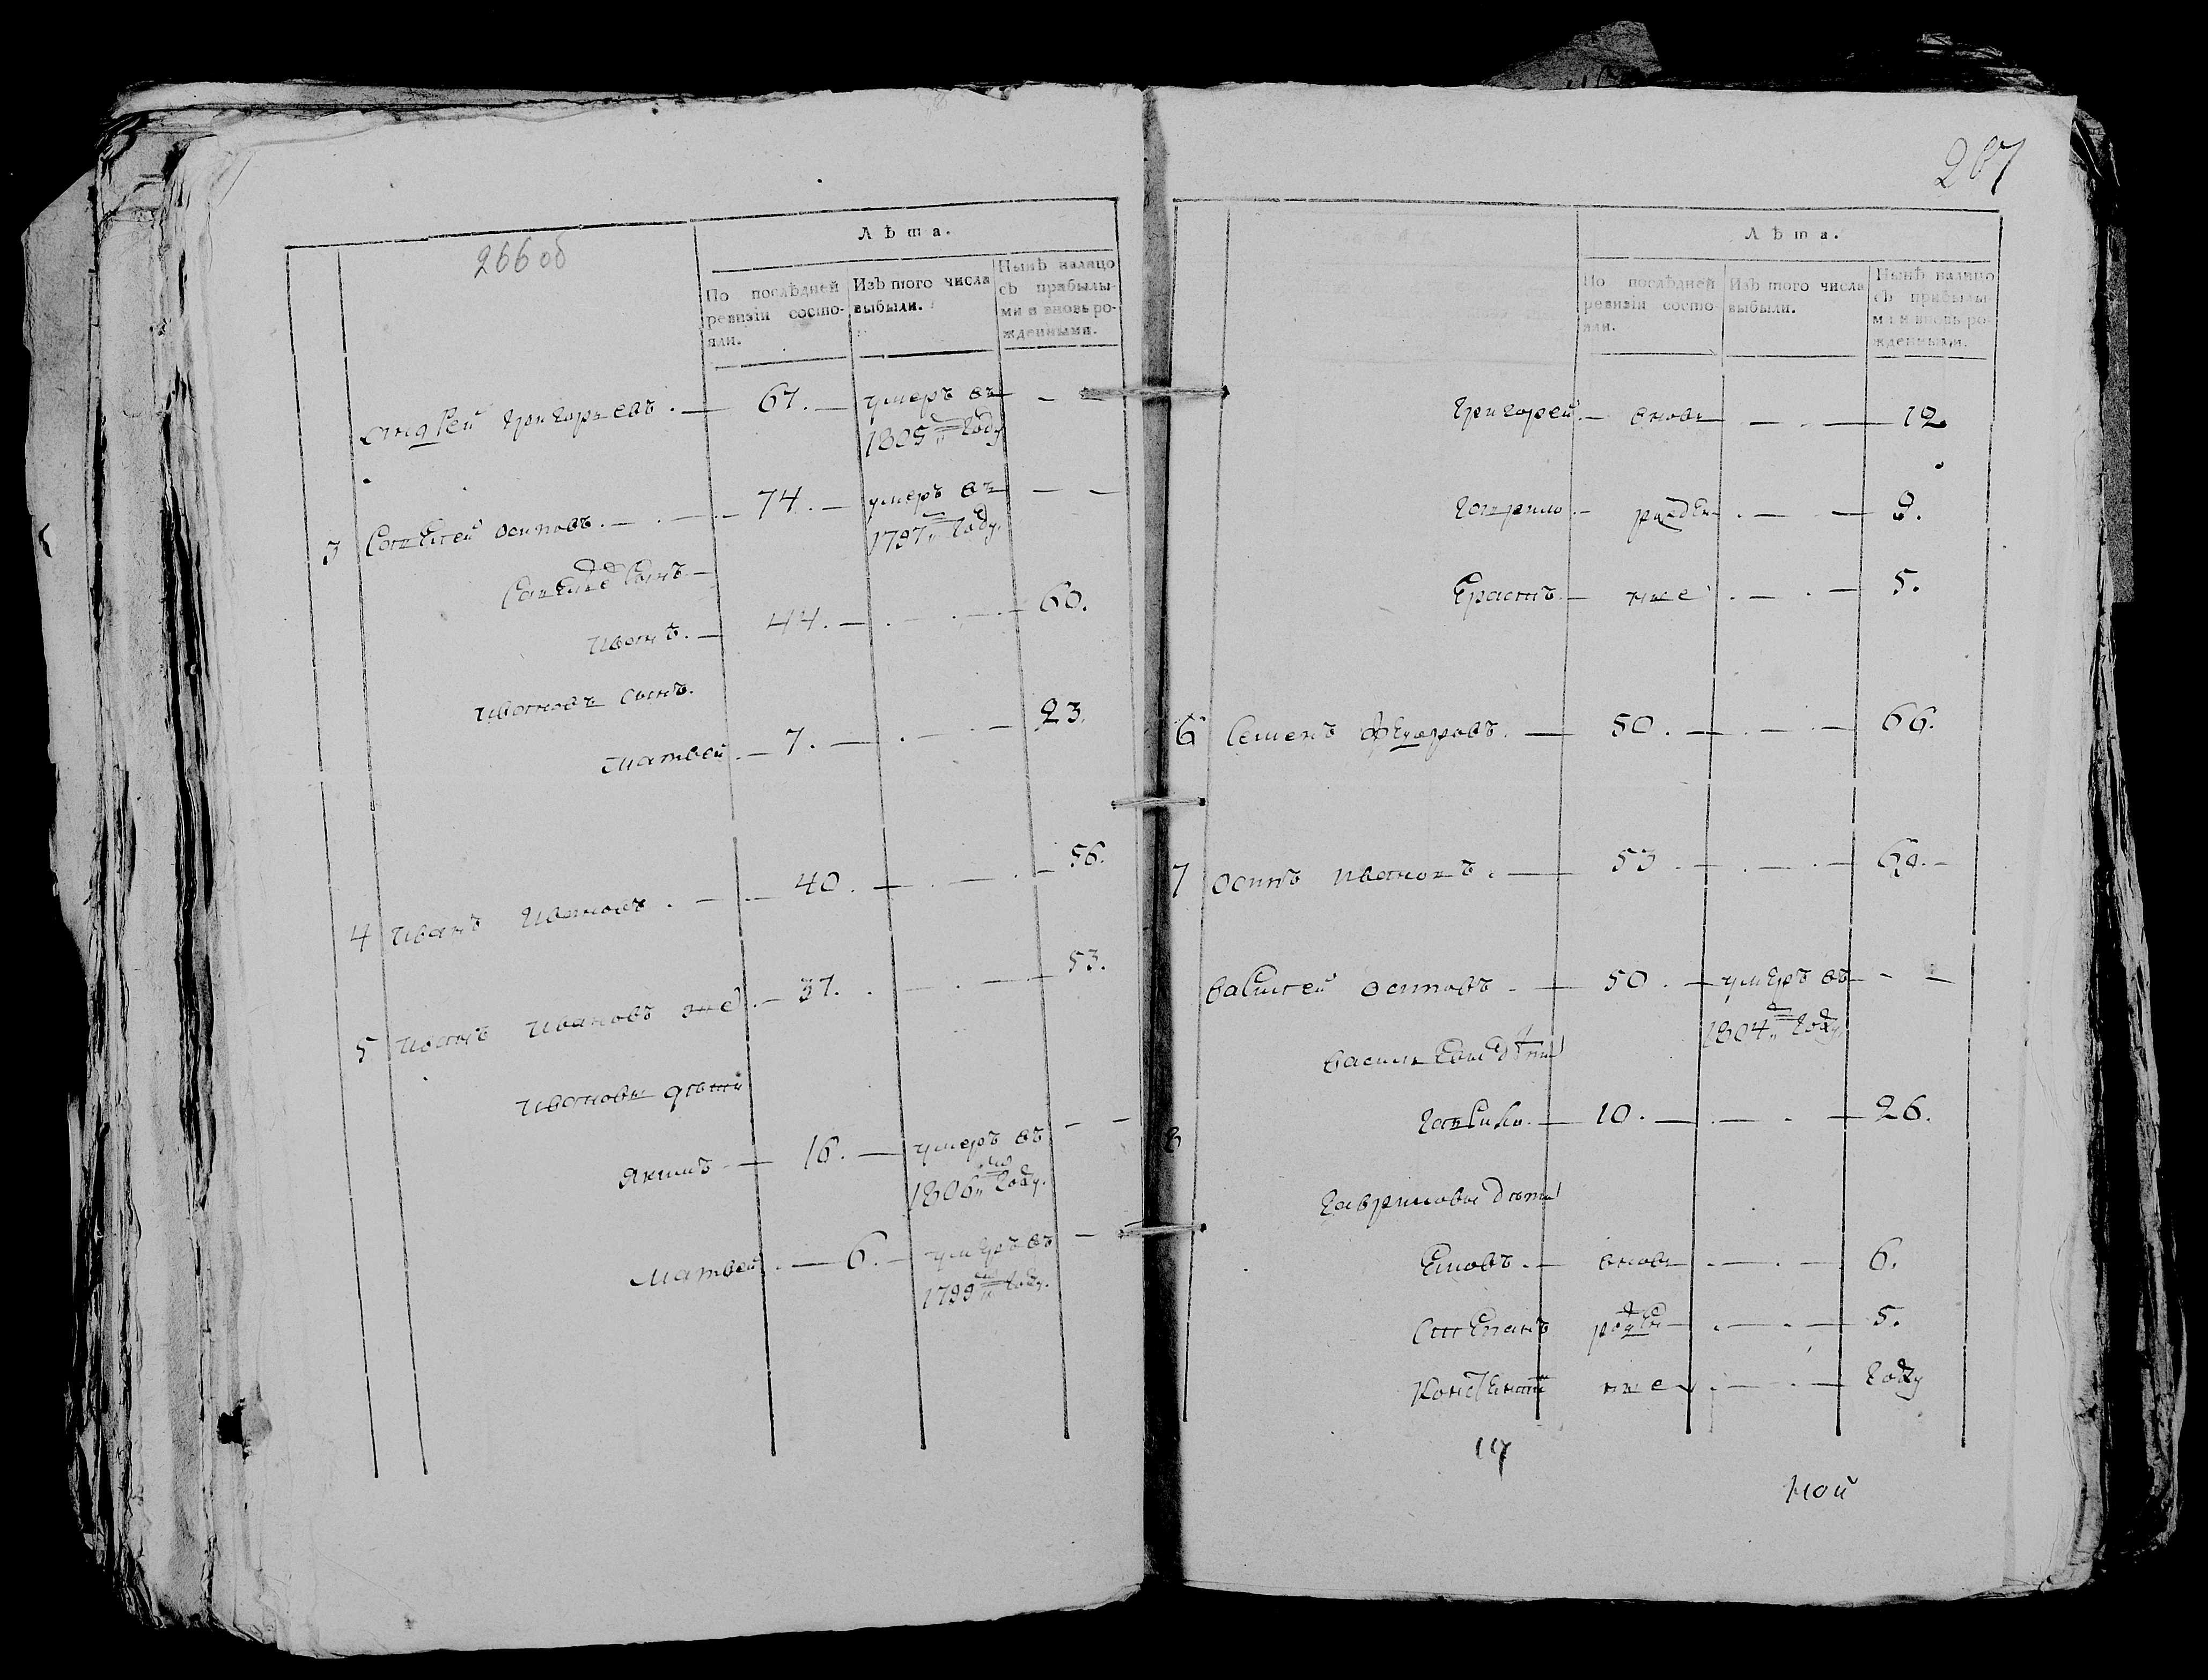 266 об
Лѣта.
По послѣдней ревизіи состояли.
Изъ того числа выбыли.
Нынѣ налицо съ прибылыми и вновь рожденными.
Андрей Григорьевъ. — 67. — умеръ въ — —
1805м году
3 Савелей Осиповъ. — 74. — умеръ въ — —
1797м году.
Савельевъ сынъ —
Иванъ. — 44. — 60.
Ивановъ сынъ.
Матвей. — 7. — 23.
4 Иванъ Ивановъ. — 40. — 56.
5 Иванъ Ивановъ же. — 37. — 53.
Ивановы дѣти
Якимъ — 16. — умеръ въ — —
1806м году.
Матвей. — 6. — умеръ въ —
1799м году.
267
Лѣта.
По послѣдней ревизіи состояли.
Изъ того числа выбыли.
Нынѣ налицо съ прибылыми и вновь рожденными.
Григорей. — вновь — 12
Гаврило. — рожден — 9.
Ерастъ — ные — 5.
6 Семенъ Федоровъ. — 50. — 66.
7 Осипъ Ивановъ. — 53 — 69.
Василей Осиповъ — 50. — умеръ въ — —
1804м году.
Васильевы дѣти
8 Гаврило. — 10. — 26.
Гавриловы дѣти
вновь — 6.
Степанъ рожден — 5.
ные — году
ной